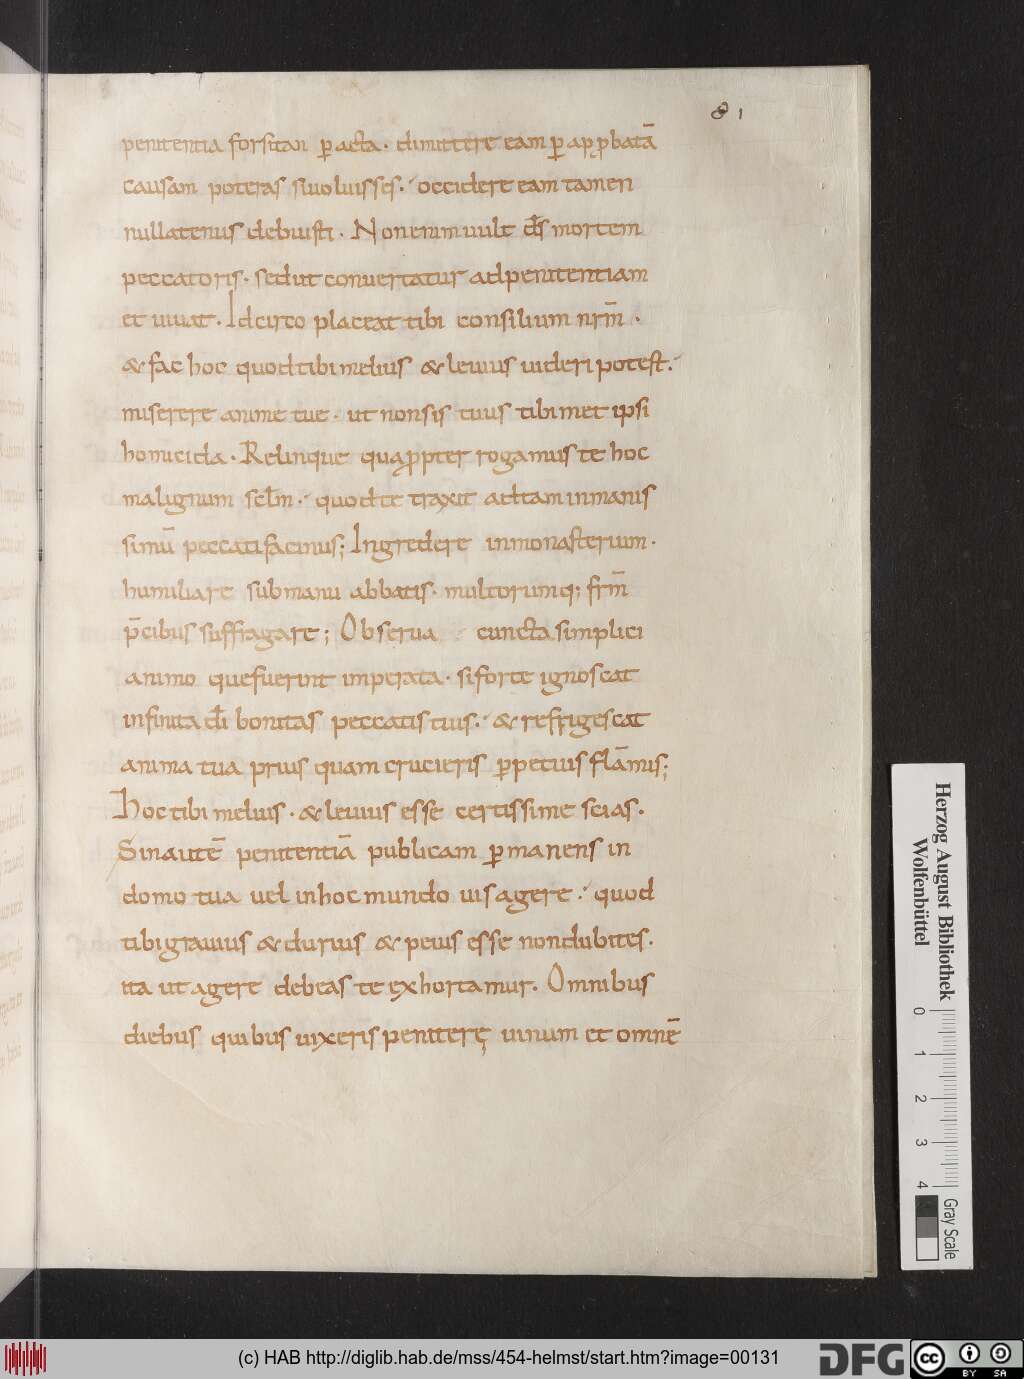 81
penitentia forsitan p̱ acta · dimittere eam p̱ apꝓbatā
causam poteras siuoluisses · occidere eam tamen
nullatenus debuisti · Nonenimuult d̅s mortem
peccatoris · sedut conuertatur adpenitentiam
et uiuat · Idcirco placeat tibi consilium nrm̅ ·
& fac hoc quodtibi melius & leuius uideri potest ·
miserere anime tue · ut nonsis tuus tibimet ipsi
homicida · Relinque quaꝓpter rogamus te hoc
malignum scelm̅ · quod te traxit adtam inmanis
simū peccati facinus; Ingredere inmonasterium ·
humiliare sub manu abbatis · multorumq; frm̅
p̄cibus suffragare; Obserua cuncta simplici
animo quefuerint imperata · siforte ignoscat
infinita d̅i bonitas peccatis tuis · & refrigescat
anima tua prius quam crucieris p̱petuis flāmis;
Hoc tibi melius · & leuius esse certissime scias ·
Sinautē penitentiā publicam p̱manens in
domo tua uel inhoc mundo uis agere · quod
tibi grauius & durius & peius esse nondubites ·
ita ut agere debeas te exhortamur · Omnibus
diebus quibus uixeris peniterę uinum et omnē
Herzog August Bibliothek
Wolfenbüttel
0 1 2 3 4
Gray Scale
(c) HAB http://diglib.hab.de/mss/454-helmst/start.htm?image=00131
DFG
cc BY SA